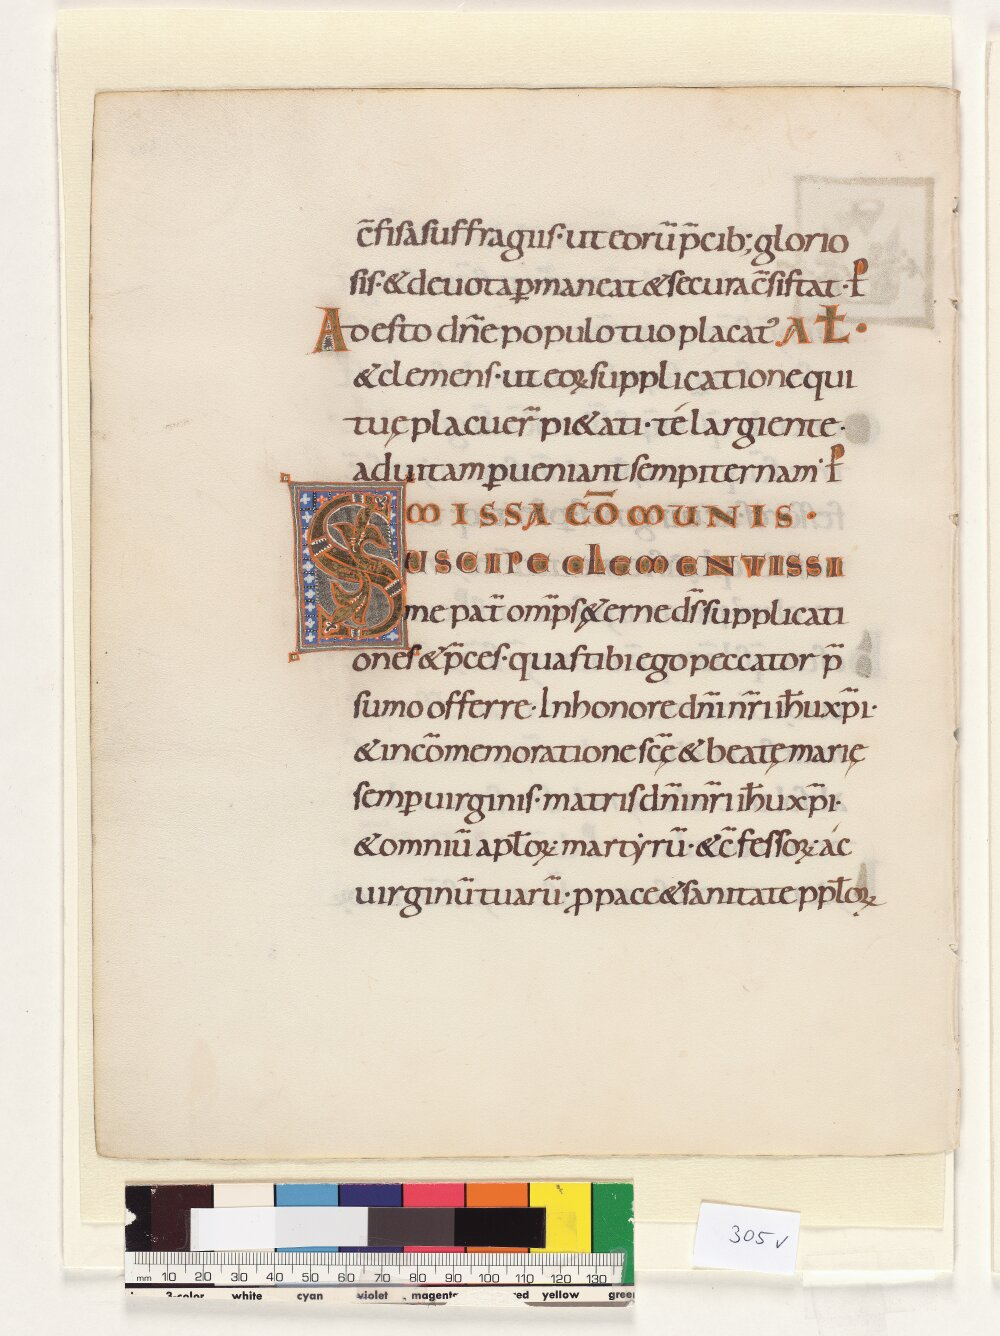 c̄fisa suffragiis· ut eorū p̄cib; glorio
sis· & deuota ꝑmaneat & secura c̄sistat· P̄
Adesto dn̄e populo tuo placatꝰ ALT̄·
& clemens· ut eoꝝ supplicatione qui
tuę placuer̄ pi&ati· té largiente·
ad uitam ꝑueniant sempiternam· P̄
MISSA CŌMUNIS·
SUSCIPE CLEMENTISSI
me pat̄ om̄ps &erne ds̄ supplicati
ones & p̄ces· quas tibi ego peccator p̄
sumo offerre· In honore dn̄i nr̄i ih̄u xp̄i·
& in c̄omemoratione sc̄ę & beatę marię
semꝑ uirginis· matris dn̄i nr̄i ih̄u xp̄i·
& omniū apl̄oꝝ· martyrū· & c̄fessoꝝ· ác
uirginū tuarū· ꝓ pace & sanitate ppl̄oꝝ
305v
mm 10 20 30 40 50 60 70 80 90 100 110 120 130
3-color white cyan violet magenta red yellow green